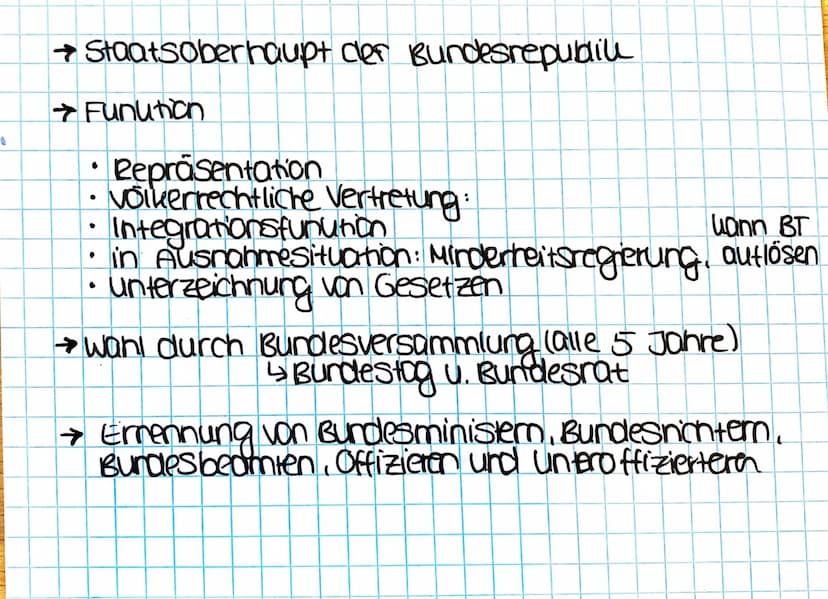 → Staatsoberhaupt der Bundesrepublik
→ Funktion
• Repräsentation
• Völkerrechtliche Vertretung:
• Integrationsfunktion
kann BT
• in Ausnahmesituation: Minderheitsregierung, auflösen
• Unterzeichnung von Gesetzen
→ Wahl durch Bundesversammlung (alle 5 Jahre)
↳ Bundestag u. Bundesrat
→ Ernennung von Bundesministern, Bundesrichtern,
Bundesbeamten, Offizieren und Unteroffizierteren